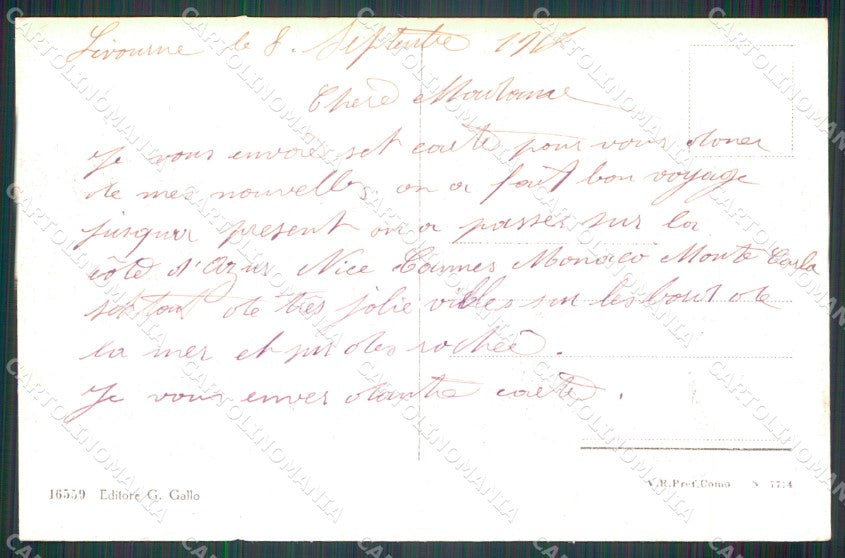 Livourne le 8. Septembre
Chere Madame
Je vous envoie set carte pour vous doner
de mes nouvelles. on a fait bon voyage
jusqua present on a passer sur la
côte d'Azur Nice Cannes Monaco Monte Carla
de très jolie villes sur les bout de
la mer et sur des rochée.
Je vous enver dautre carte.
16559 Editore G. Gallo
V.R.Pref.Como S 7774
CARTOLINOMANIA